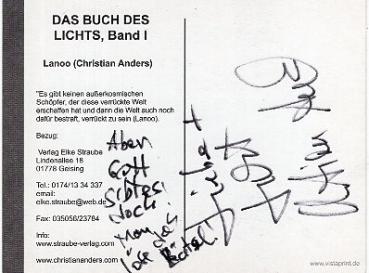 DAS BUCH DES
LICHTS, Band I
Lanoo (Christian Anders)
"Es gibt keinen außerkosmischen
Schöpfer, der diese verrückte Welt
erschaffen hat und dann die Welt auch noch
dafür bestraft, verrückt zu sein (Lanoo).
Bezug:
Verlag Elke Straube
Lindenallee 18
01778 Geising
Tel.: 0174/13 34 337
email:
elke.straube@web.de
Fax: 035056/23764
Info:
www.straube-verlag.com
www.christiananders.com
Aber
Gott
gibt es
doch!
Rätsel!
www.vistaprint.de